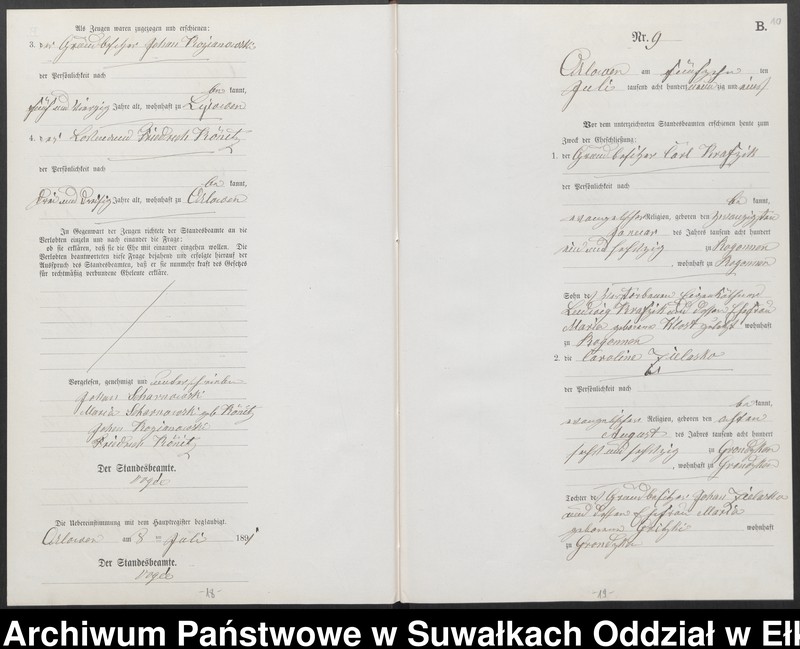 Als Zeugen waren zugezogen und erschienen:
3. der Grundbesitzer Johann Kozianowski
der Persönlichkeit nach
be kannt,
fünf und vierzig Jahre alt, wohnhaft zu
4. der Losmann Friedrich Könitz
der Persönlichkeit nach
be kannt,
drei und dreißig Jahre alt, wohnhaft zu Orlowen
In Gegenwart der Zeugen richtete der Standesbeamte an die
Verlobten einzeln und nach einander die Frage:
ob sie erklären, daß sie die Ehe mit einander eingehen wollen. Die
Verlobten beantworteten diese Frage bejahend und erfolgte hierauf der
Ausspruch des Standesbeamten, daß er sie nunmehr kraft des Gesetzes
für rechtmäßig verbundene Eheleute erkläre.
Vorgelesen, genehmigt und unterschrieben
Johann Scharnowski
Marie Scharnowski geb. Könitz
Johann Kozianowski
Friedrich Könitz
Der Standesbeamte.
Die Uebereinstimmung mit dem Hauptregister beglaubigt.
Orlowen am 8 ten Juli 1891
Der Standesbeamte.
-18-
B.
10
Nr. 9
Orlowen am fünfzehn ten
Juli tausend acht hundert neunzig und eins
Vor dem unterzeichneten Standesbeamten erschienen heute zum
Zweck der Eheschließung:
1. der Grundbesitzer Carl Krafzik
der Persönlichkeit nach
be kannt,
evangelischer Religion, geboren den zwanzigsten
Januar des Jahres tausend acht hundert
ein und sechszig zu Rogonnen
, wohnhaft zu Rogonnen
Sohn des verstorbenen
Ludwig Krafzik und dessen Ehefrau
Marie geborene wohnhaft
zu Rogonnen
2. die Caroline Zielasko
der Persönlichkeit nach
be kannt,
evangelischer Religion, geboren den achten
August des Jahres tausend acht hundert
sechs und sechszig zu Grondzken
, wohnhaft zu Grondzken
Tochter des Grundbesitzer Johann Zielasko
und dessen Ehefrau Marie
geborene wohnhaft
zu Grondzken
-19-
Archiwum Państwowe w Suwałkach Oddział w Ełk